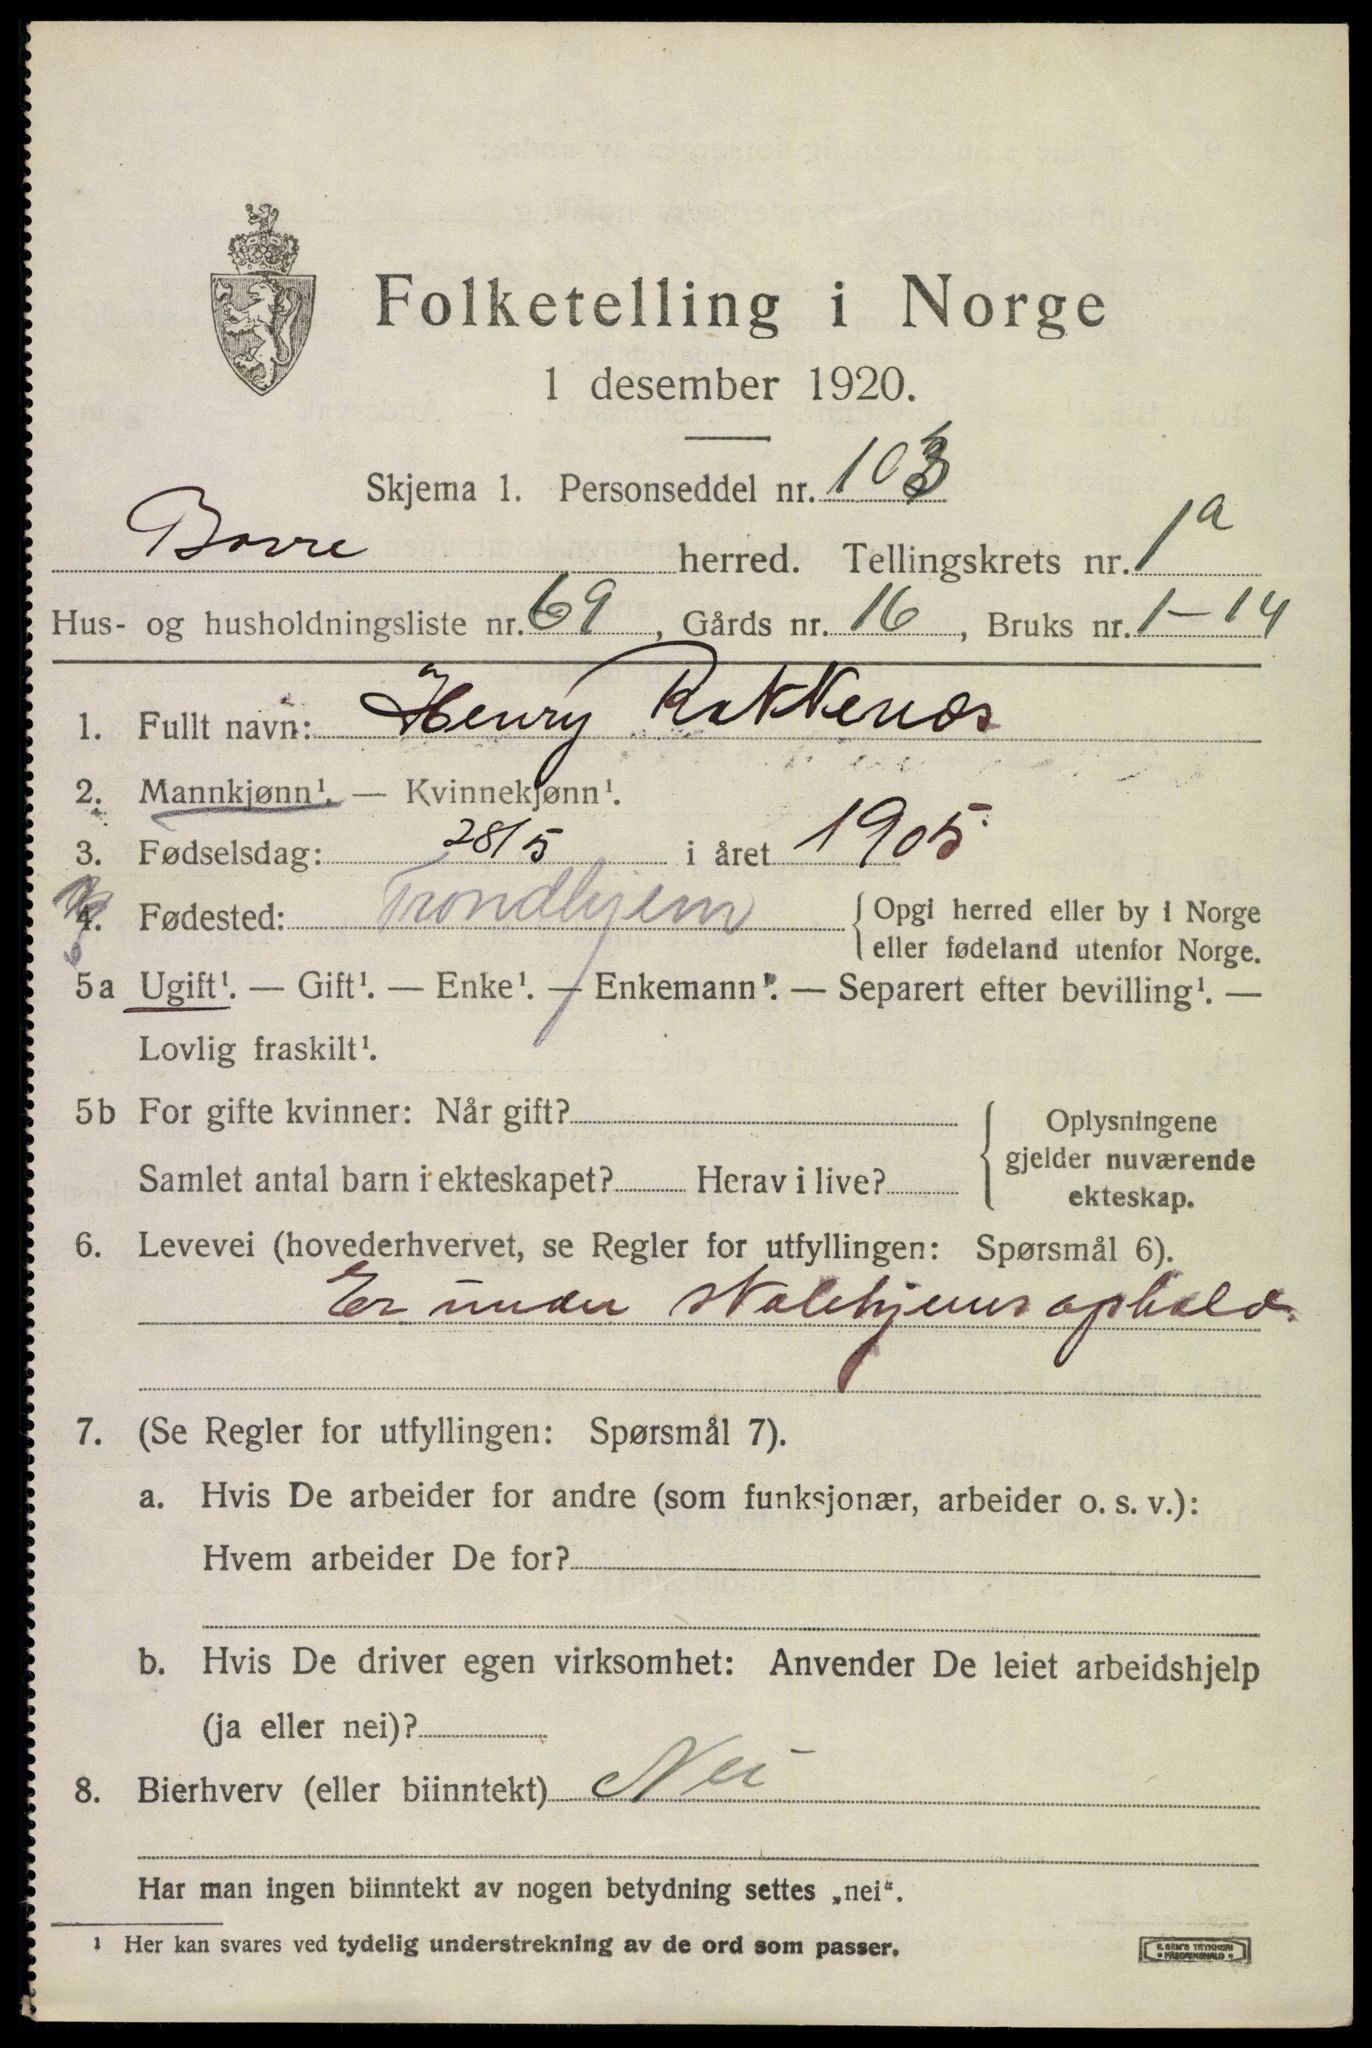 Folketelling i Norge
1 desember 1920.
Skjema 1. Personseddel nr. 103
Borre herred. Tellingskrets nr. 1a
Hus- og husholdningsliste nr. 69, Gårds nr. 16, Bruks nr. 1-14
1. Fullt navn: Henry Rokkenes
2. Mannkjønn¹. — Kvinnekjønn¹.
3. Fødselsdag: 28/5 i året 1905
4. Fødested: Trondhjem { Opgi herred eller by i Norge
eller fødeland utenfor Norge.
5a Ugift¹. — Gift¹. — Enke¹. — Enkemann¹. — Separert efter bevilling¹. —
Lovlig fraskilt¹.
5b For gifte kvinner: Når gift? { Oplysningene
gjelder nuværende
Samlet antal barn i ekteskapet? Herav i live? ekteskap.
6. Levevei (hovederhvervet, se Regler for utfyllingen: Spørsmål 6).
Er under skolehjemsophold.
7. (Se Regler for utfyllingen: Spørsmål 7).
a. Hvis De arbeider for andre (som funksjonær, arbeider o. s. v.):
Hvem arbeider De for?
b. Hvis De driver egen virksomhet: Anvender De leiet arbeidshjelp
(ja eller nei)?
8. Bierhverv (eller biinntekt) Nei
Har man ingen biinntekt av nogen betydning settes „nei“.
¹ Her kan svares ved tydelig understrekning av de ord som passer.
E. SEM'S TRYKKERI
FREDRIKSHALD